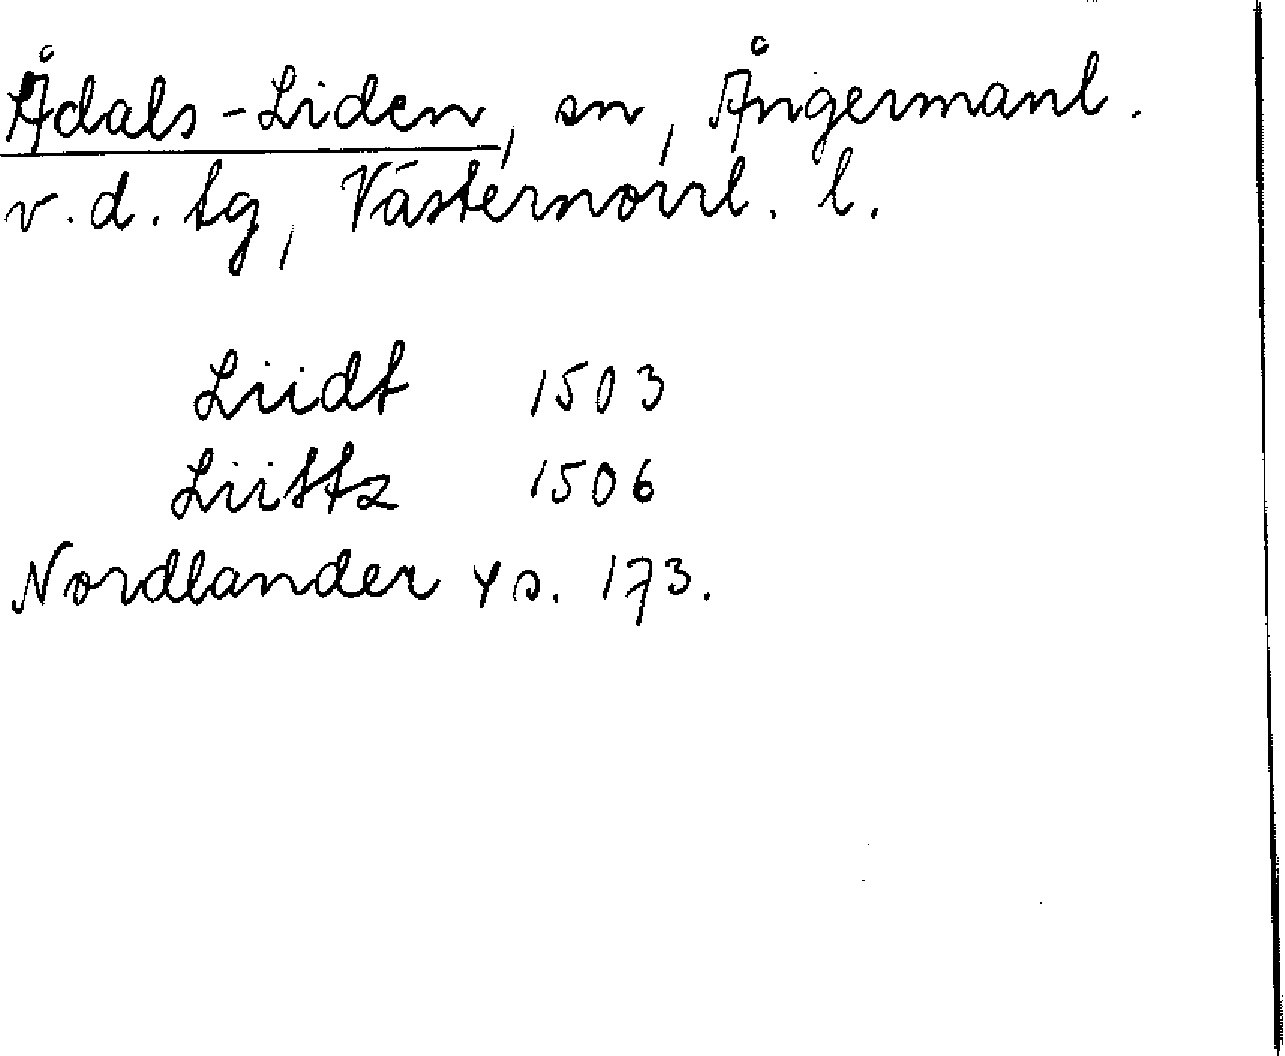 Ådals-Liden, sn, Ångermanl.
v. d. tg, Västernorrl. l.
Liidt 1503
Liittz 1506
Nordlander 4 s. 173.